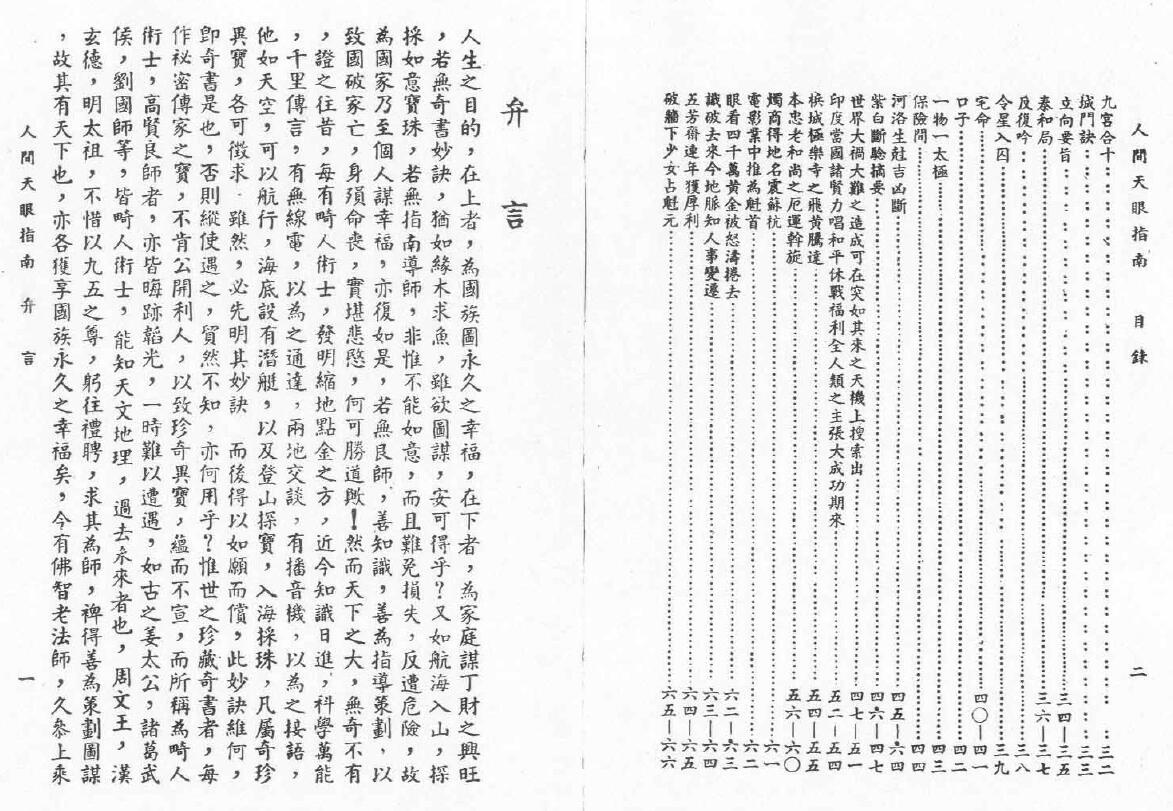 人間天眼指南　目錄　二
九宮合十……三二
城門訣……三三
立向要旨……三四—三五
泰和局……三六—三七
反復吟……三八
令星入囚……三九
宅命……四〇—四一
口子……四二
一物一太極……四三
保險問……四四
河洛生尅吉凶斷……四五—六四
紫白斷驗摘要……四六—四七
世界大禍大難之造成可在突如其來之天機上搜索出……四七—五一
印度當國諸賢力唱和平休戰福利全人類之主張大成功期來……五二—五四
檳城極樂寺之飛黃騰達……五四—五五
本忠老和尚之厄運斡旋……五六—六〇
燭商得地名震蘇杭……六一
電影業中推為魁首……六二
眼看四千萬黃金被怒濤捲去……六二—六三
識破去來今地脈知人事變遷……六三—六四
五芳齋連年獲厚利……六四—六五
破牆下少女占魁元……六五—六六
弁言
人生之目的，在上者，為國族圖永久之幸福，在下者，為家庭謀丁財之興旺
，若無奇書妙訣，猶如緣木求魚，雖欲圖謀，安可得乎？又如航海入山，探
採如意寶珠，若無指南導師，非惟不能如意，而且難免損失，反遭危險，故
為國家乃至個人謀幸福，亦復如是，若無良師，善知識，善為指導策劃，以
致國破家亡，身殞命喪，實堪悲愍，何可勝道歟！然而天下之大，無奇不有
，證之往昔，每有畸人術士，發明縮地點金之方，近今知識日進，科學萬能
，千里傳言，有無線電，以為之通達，兩地交談，有播音機，以為之接語，
他如天空，可以航行，海底設有潛艇，以及登山探寶，入海採珠，凡屬奇珍
異寶，各可徵求．雖然，必先明其妙訣　而後得以如願而償，此妙訣維何，
卽奇書是也，否則縱使遇之，貿然不知，亦何用乎？惟世之珍藏奇書者，每
作祕密傳家之寶，不肯公開利人，以致珍奇異寶，蘊而不宣，而所稱為畸人
術士，高賢良師者，亦皆晦跡韜光，一時難以遭遇，如古之姜太公，諸葛武
侯，劉國師等，皆畸人術士，能知天文地理，過去未來者也，周文王，漢
玄德，明太祖，不惜以九五之尊，躬往禮聘，求其為師，裨得善為策劃圖謀
，故其有天下也，亦各獲享國族永久之幸福矣，今有佛智老法師，久參上乘
人間天眼指南　弁言　一